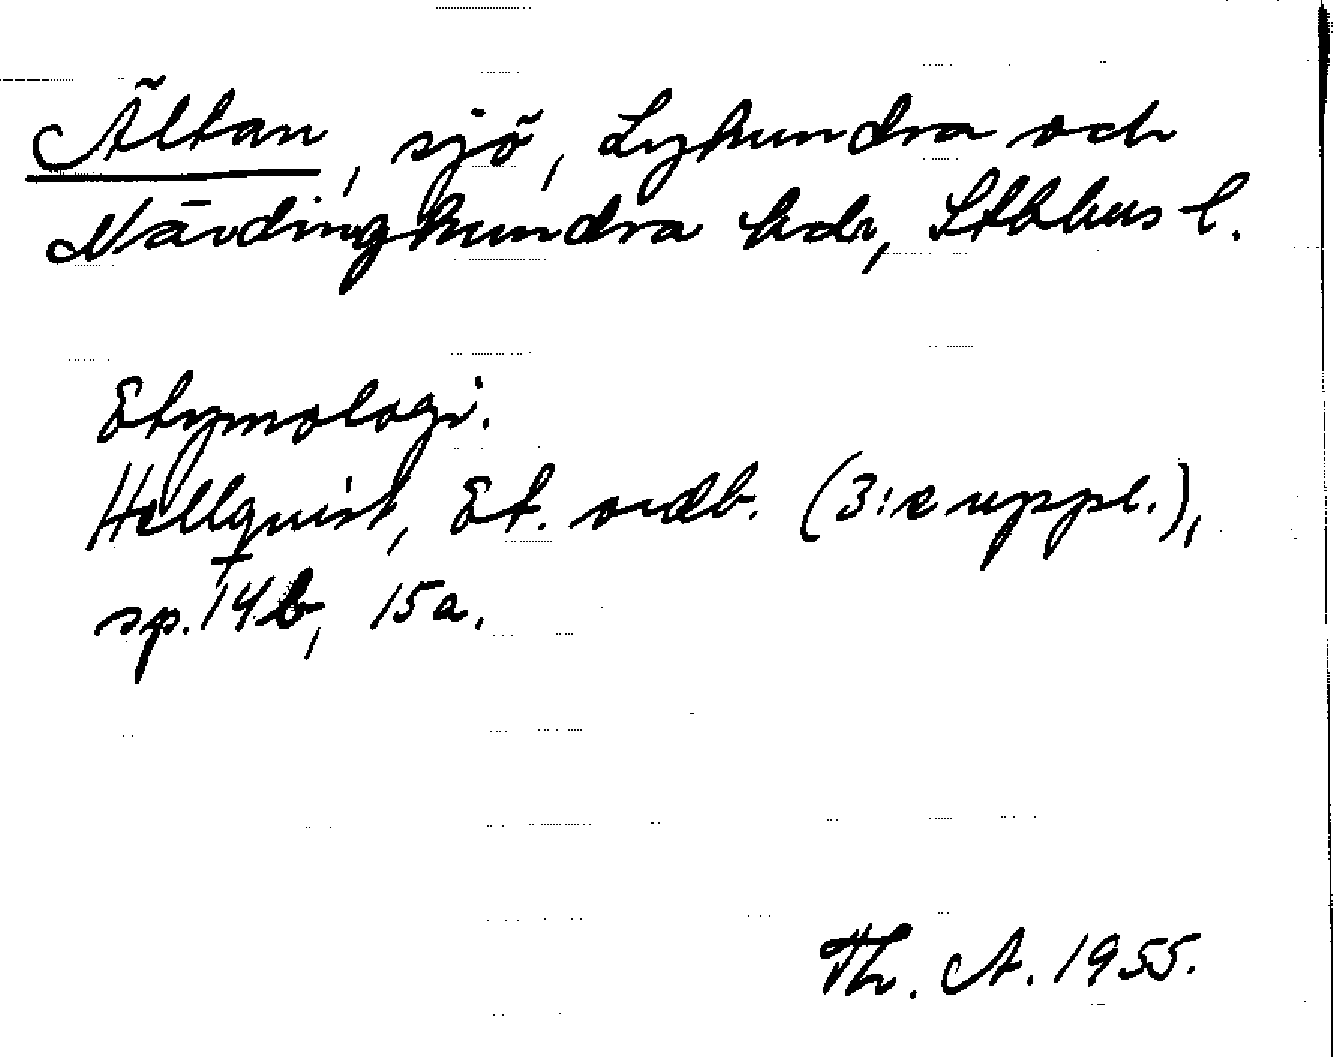 Ältan, sjö, Lyhundra och
Närdinghundra hdr, Sthlms l.
Etymologi.
Hellquist, Et. ordb. (3:e uppl.),
sp. 14b, 15a.
Th. A. 1955.